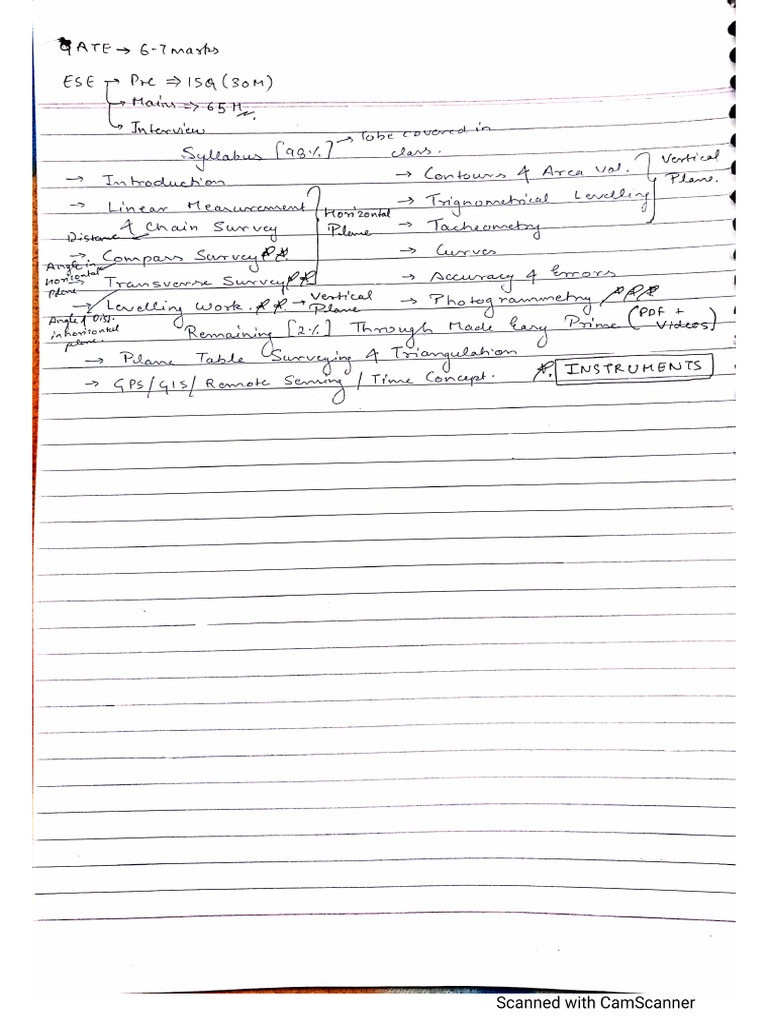 GATE → 6-7 marks
ESE → Pre ⇒ 15Q (30M)
→ Mains ⇒ 65M
→ Interview
Syllabus [98%] → To be covered in class.
→ Introduction
→ Linear Measurement & Chain Survey
Distance
→ Compass Survey ** 
Angle in Horizontal plane
→ Transverse Survey **
Angle & Dist. in horizontal plane.
Horizontal Plane
→ Levelling Work. ** → Vertical Plane
→ Contours & Area Vol.
→ Trignometrical Levelling
→ Tacheometry
Vertical Plane.
→ Curves
→ Accuracy & Errors
→ Photogrammetry ***
Remaining [2%] Through Made Easy Prime (PDF + Videos)
→ Plane Table Surveying & Triangulation
→ GPS/GIS/Remote Sensing / Time Concept.
*. INSTRUMENTS
Scanned with CamScanner